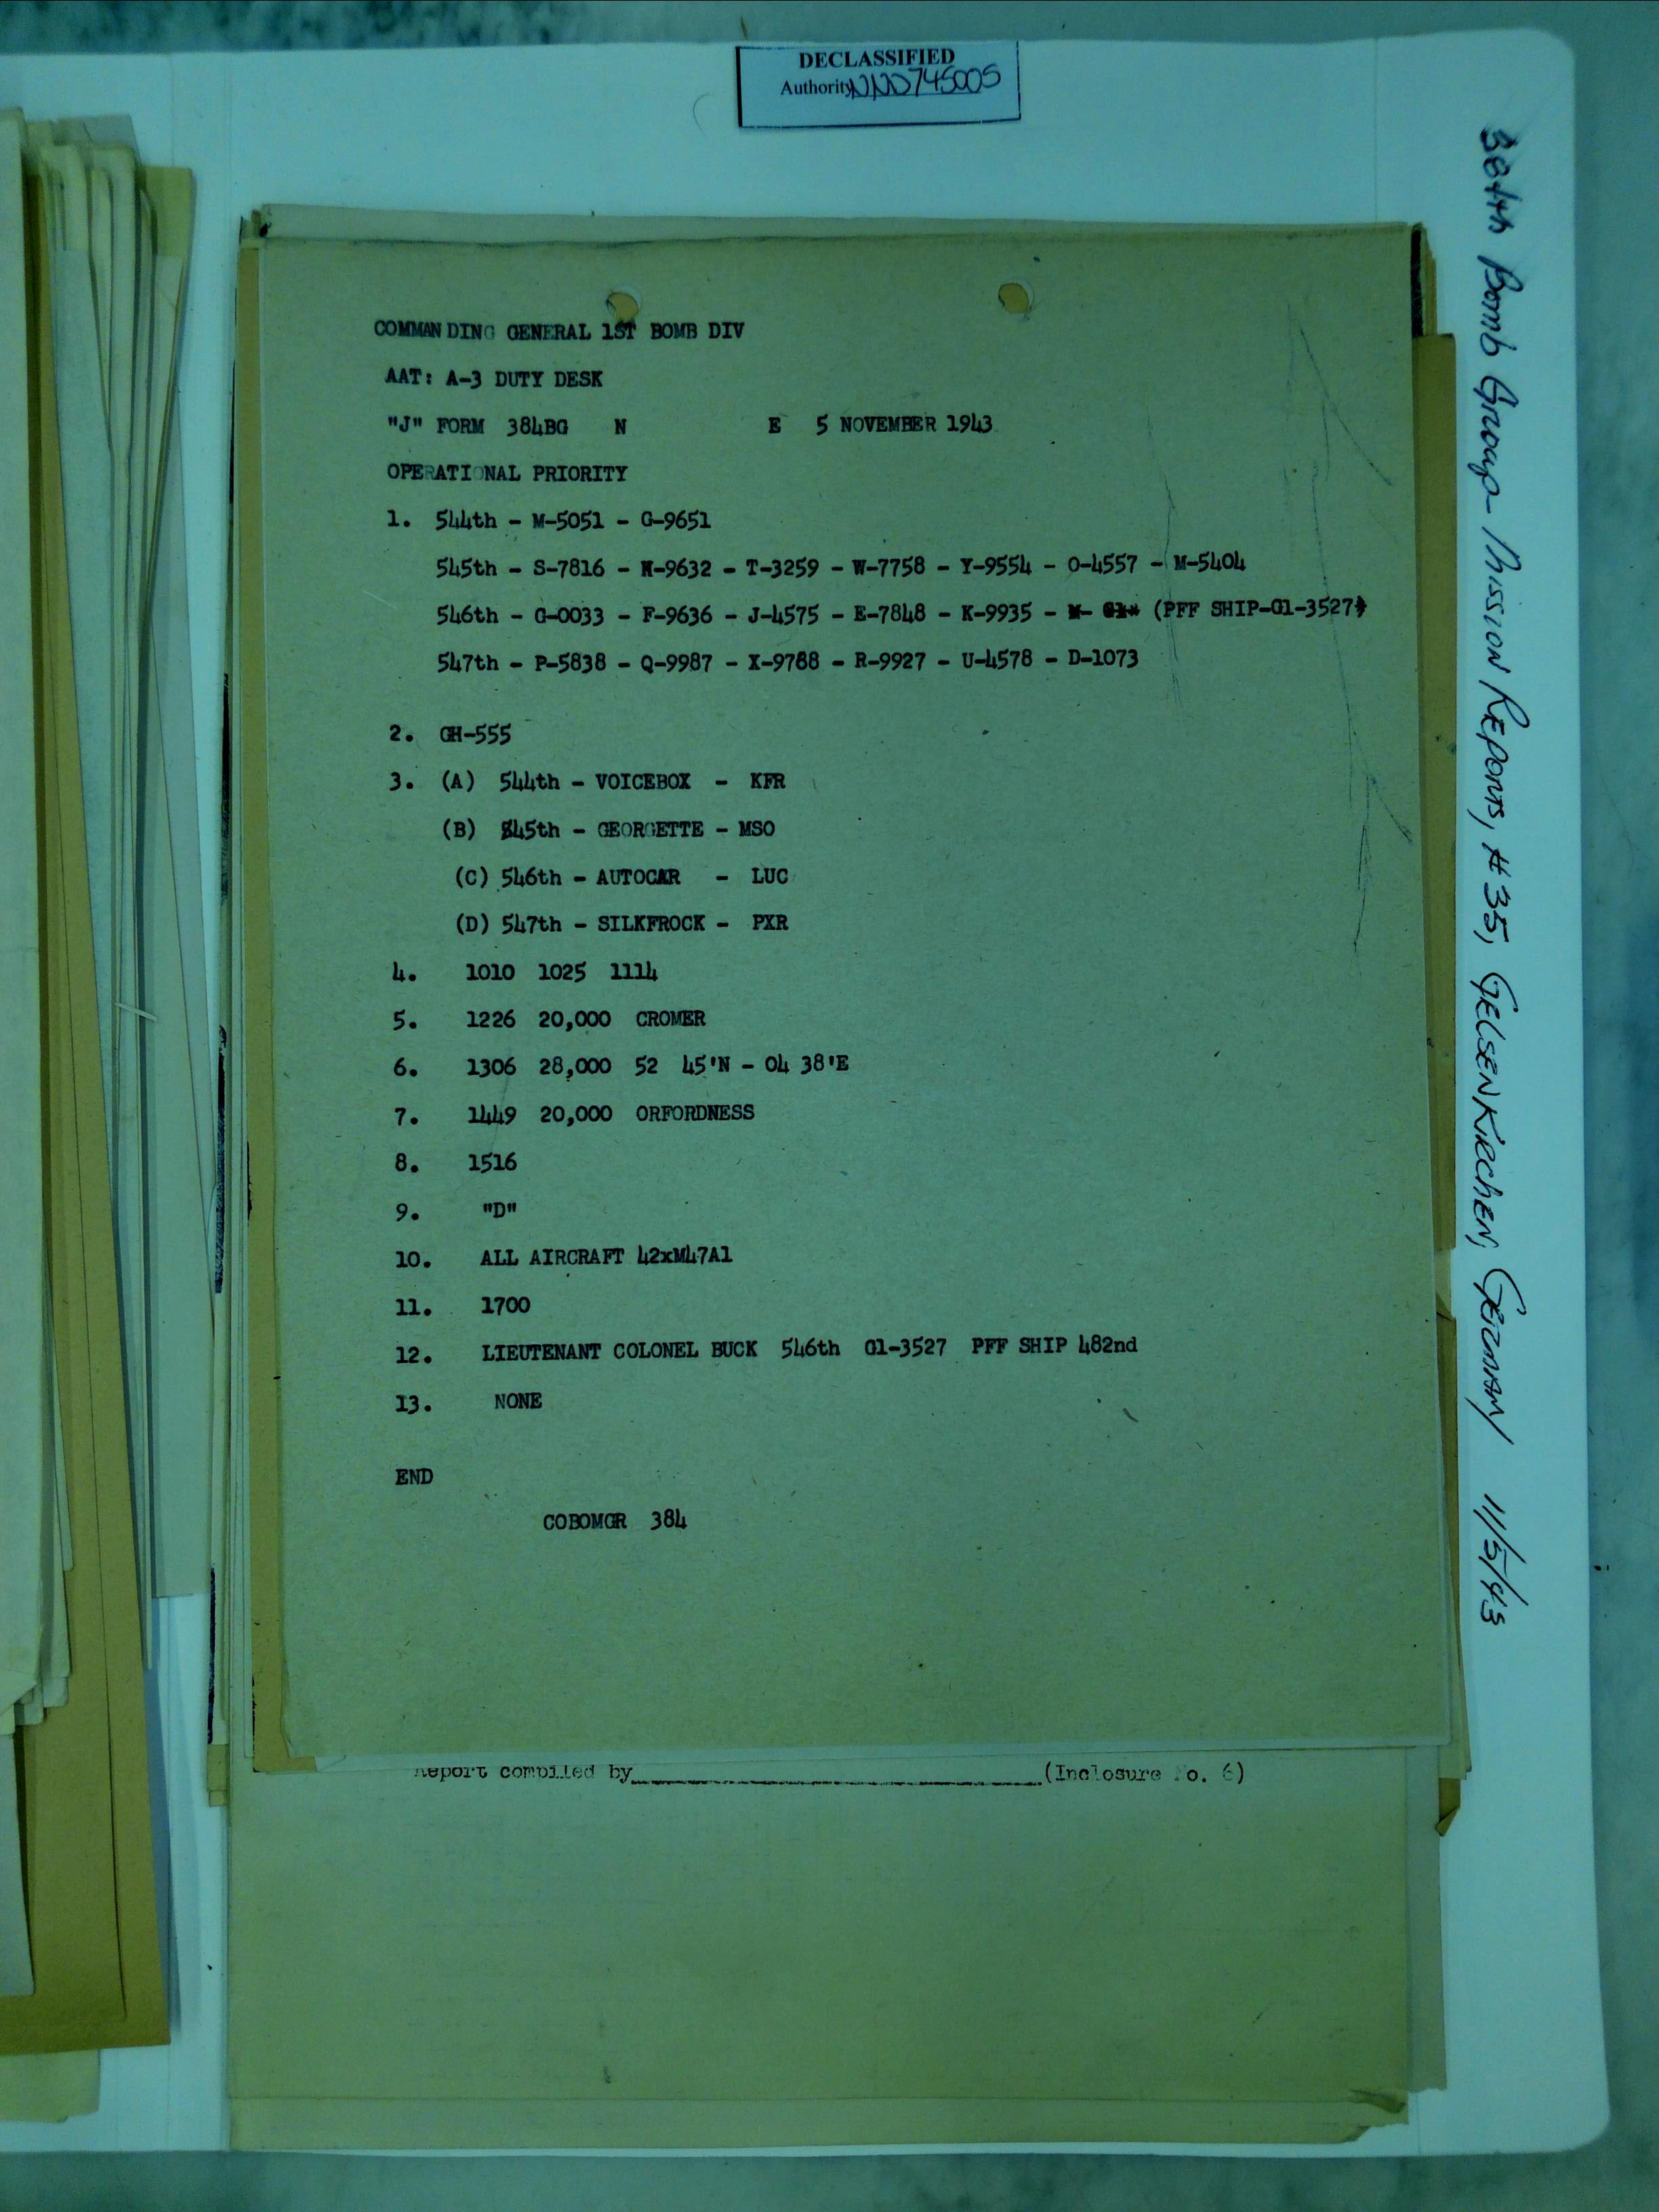 DECLASSIFIED
Authority NND745005
COMMANDING GENERAL 1ST BOMB DIV
AAT: A-3 DUTY DESK
"J" FORM 384BG N E 5 NOVEMBER 1943
OPERATIONAL PRIORITY
1. 544th - M-5051 - G-9651
545th - S-7816 - N-9632 - T-3259 - W-7758 - Y-9554 - O-4557 - M-5404
546th - G-0033 - F-9636 - J-4575 - E-7848 - K-9935 - (PFF SHIP-G1-3527)
547th - P-5838 - Q-9987 - X-9788 - R-9927 - U-4578 - D-1073
2. GH-555
3. (A) 544th - VOICEBOX - KFR
(B) 545th - GEORGETTE - MSO
(C) 546th - AUTOCAR - LUC
(D) 547th - SILKFROCK - PXR
4. 1010 1025 1114
5. 1226 20,000 CROMER
6. 1306 28,000 52 45'N - 04 38'E
7. 1449 20,000 ORFORDNESS
8. 1516
9. "D"
10. ALL AIRCRAFT 42xM47A1
11. 1700
12. LIEUTENANT COLONEL BUCK 546th G1-3527 PFF SHIP 482nd
13. NONE
END
COBOMGR 384
Report compiled by (Inclosure No. 6)
384th Bomb Group Mission Reports, #35, Gelsenkirchen, Germany 11/5/43